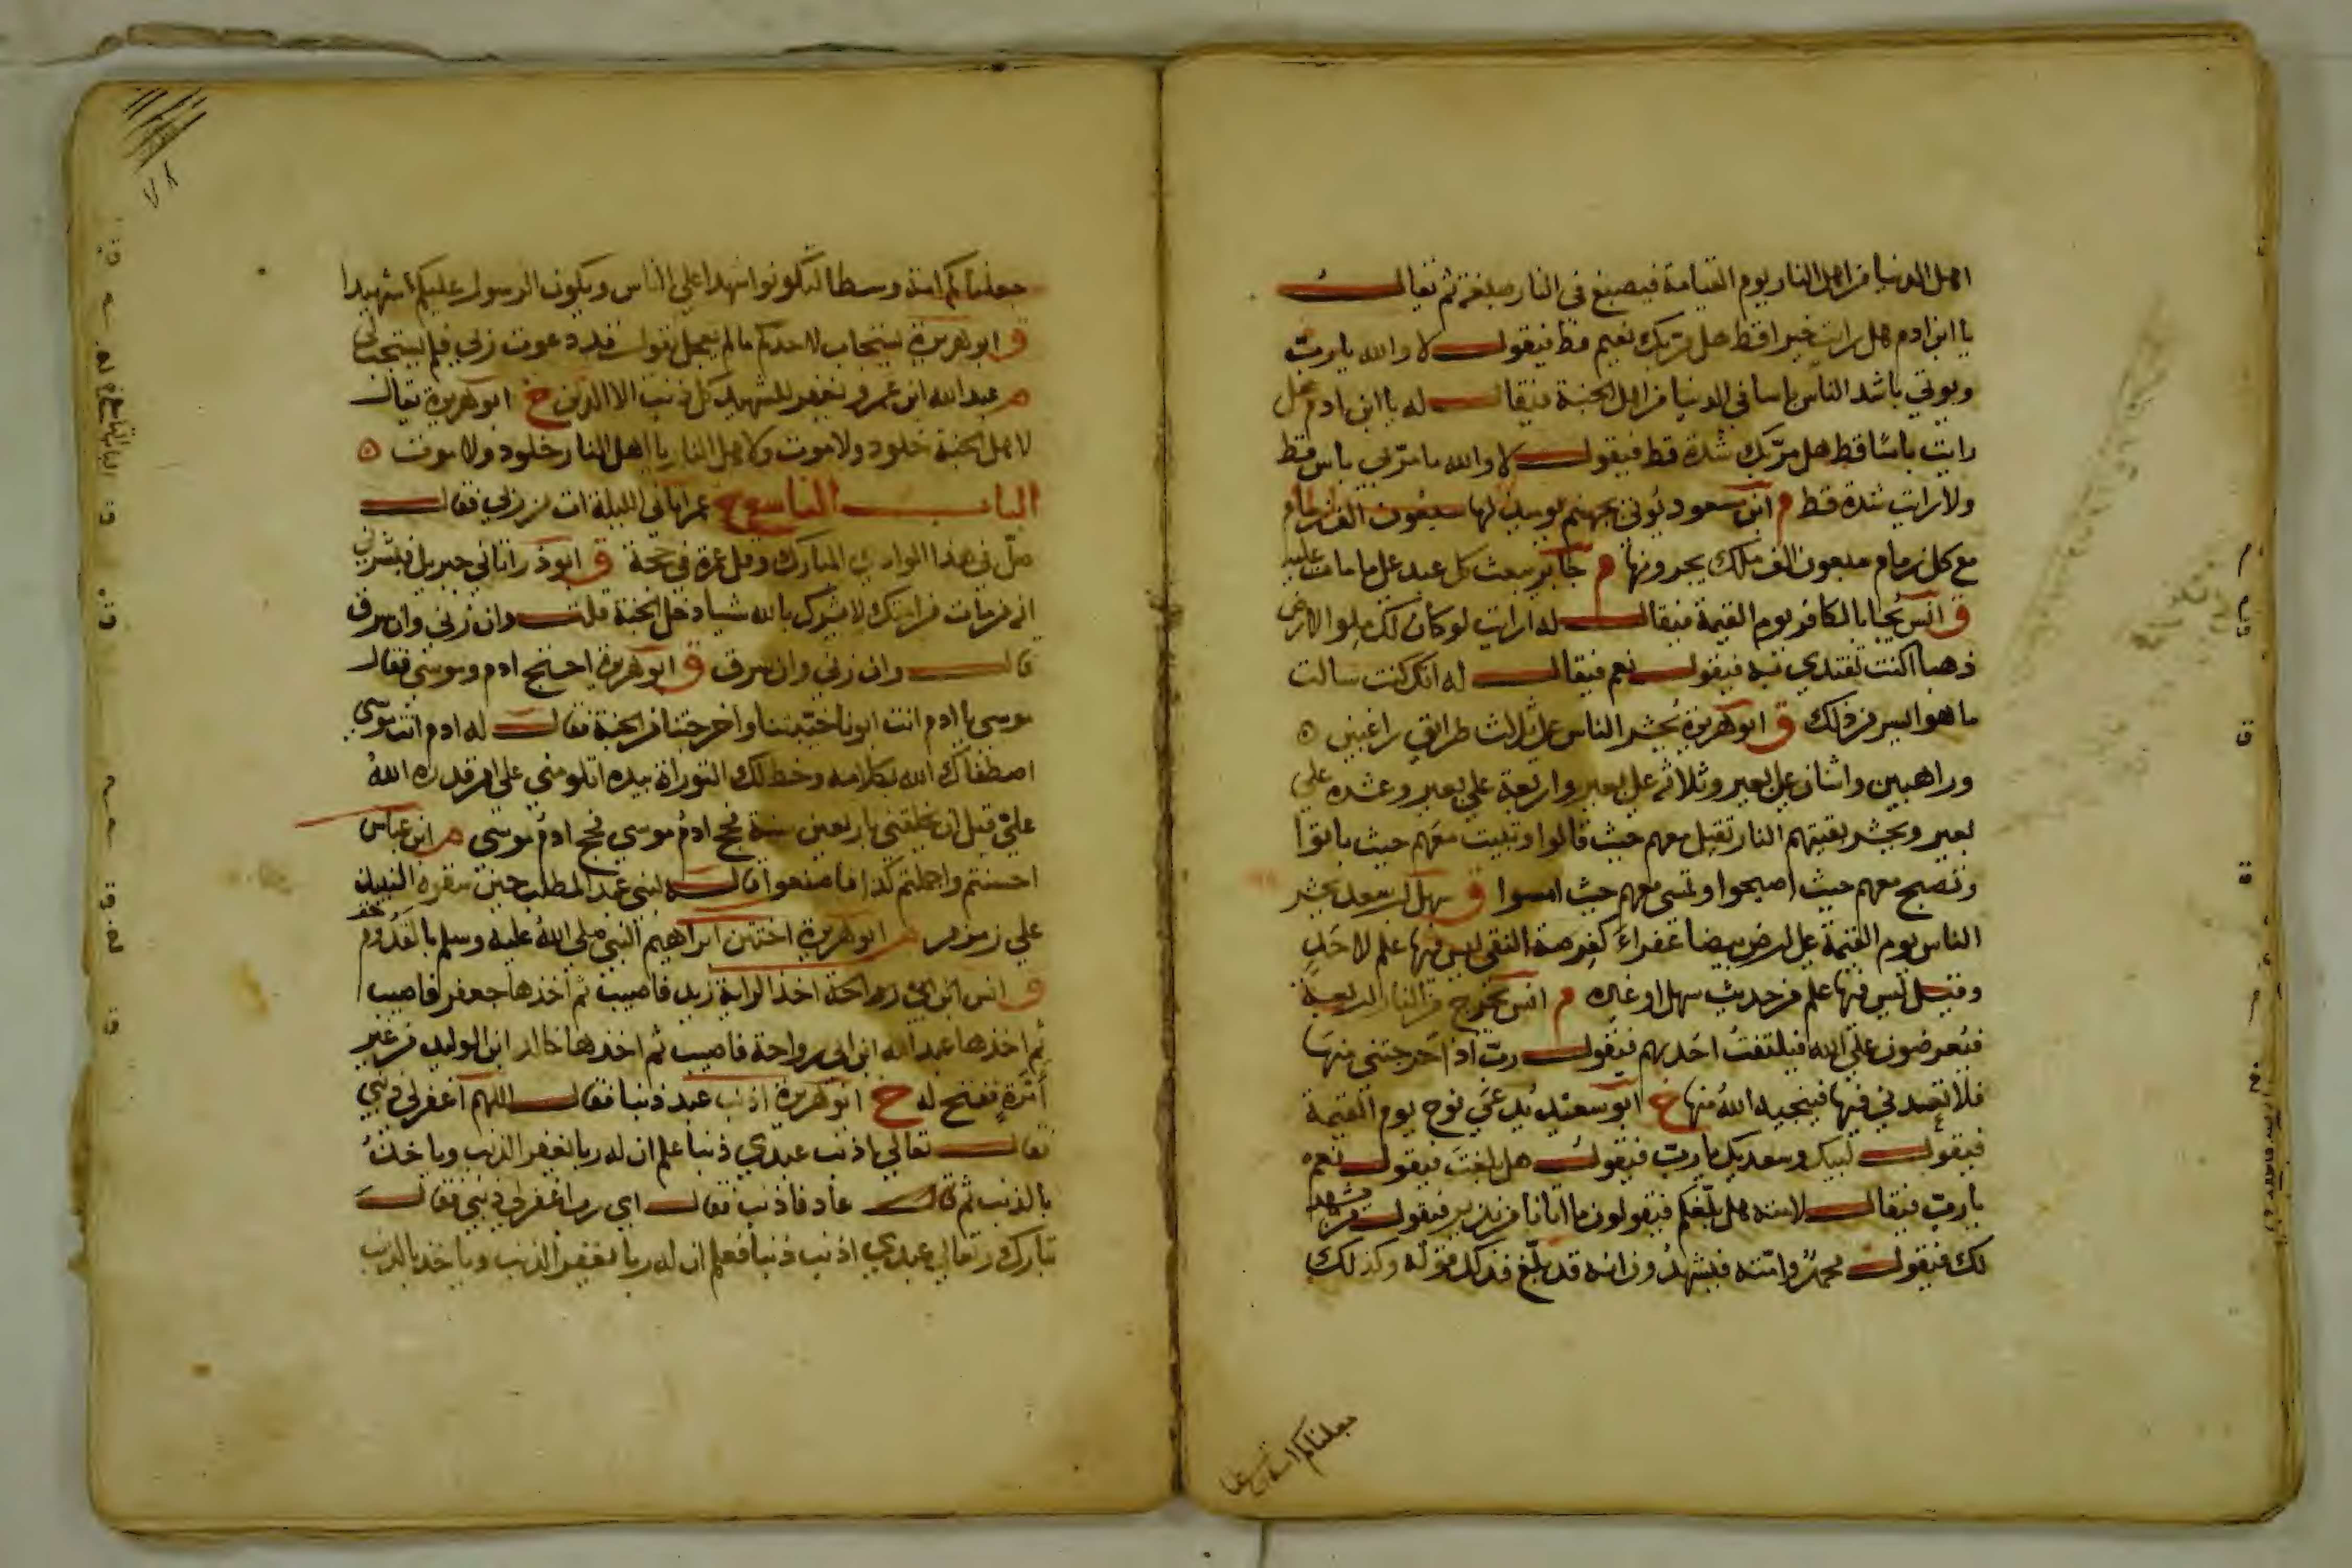 اهل الدنيا من اهل النار يوم القيامة فيصبغ في النار صبغة ثم يقال
يا ابن ادم هل رايت خيرا قط هل مر بك نعيم قط فيقول لا والله يا رب
ويوتي باشد الناس باسا في الدنيا من اهل الجنة فيقال له يا ابن ادم هل
رايت باسا قط هل مر بك شدة قط فيقول لا والله ما مر بي باس قط
ولا رايت شدة قط م ابن مسعود يوتي بجهنم يوميذ لها سبعون الف زمام
مع كل زمام سبعون الف ملك يجرونها م جابر يبعث كل عبد علي ما مات عليه
ق انس يجا بالكافر يوم القيمة فيقال له ارايت لو كان لك ملو الارض
ذهبا اكنت تفتدي به فيقول نعم فيقال له انك كنت سالت
ما هو ايسر من ذلك ق ابو هريرة يحشر الناس علي ثلاث طرايق راغبين
وراهبين واثنان علي بعير وثلاثه علي بعير واربعة علي بعير وعشره علي
بعير ويحشر بقيتهم النار تقيل معهم حيث قالوا وتبيت معهم حيث باتوا
وتصبح معهم حيث اصبحوا وتمسي معهم حيث امسوا ق سهل بن سعد يحشر
الناس يوم القيمة علي ارض بيضا عفراء كقرصة النقي ليس فيها علم لاحد
وقيل ليس فيها علم من حديث سهل او غيره م انس يخرج من النار اربعة
فيعرضون علي الله فيلتفت احدهم فيقول رب اذ اخرجتني منها
فلا تعدني فيها فينجيه الله منها خ ابو سعيد يدعي نوح يوم القيمة
فيقول لبيك وسعديك يا رب فيقول هل بلغت فيقول نعم
يا رب فيقال لامته هل بلغكم فيقولون ما اتانا من نذير فيقول من يشهد
لك فيقول محمد وامته فيشهدون انه قد بلغ فذلك قوله وكذلك
جعلناكم امة
جعلناكم امة وسطا لتكونوا شهدا علي الناس ويكون الرسول عليكم شهيدا
ق ابو هريرة يستجاب لاحدكم ما لم يعجل يقول قد دعوت ربي فلم يستجب لي
م عبد الله ابن عمرو يغفر للشهيد كل ذنب الا الدين خ ابو هريرة يقال
لاهل الجنة خلود ولا موت ولاهل النار يا اهل النار خلود ولا موت
الباب التاسع خ عمر اتاني الليلة ات من ربي فقال
صل في هذا الوادي المبارك وقل عمرة في حجة ق ابو ذر اتاني جبريل فبشرني
انه من مات من امتك لا يشرك بالله شيا دخل الجنة قلت وان زني وان سرق
قال وان زني وان سرق ق ابو هريرة احتج ادم وموسي فقال
موسي يا ادم انت ابونا خيبتنا واخرجتنا من الجنة فقال له ادم انت موسي
اصطفاك الله بكلامه وخط لك التوراة بيده اتلومني علي امر قدره الله
علي قبل ان يخلقني باربعين سنة فحج ادم موسي فحج ادم موسي م ابن عباس
احسنتم واجملتم كذا فاصنعوا قاله لبني عبد المطلب حين سقوه النبيذ
علي زمزم م ابو هريرة اختتن ابراهيم النبي صلي الله عليه وسلم بالقدوم
ق انس ابن ابي رواحة اخذ الراية زيد فاصيب ثم اخذها جعفر فاصيب
ثم اخذها عبد الله ابن ابي رواحة فاصيب ثم اخذها خالد ابن الوليد من غير
امرة ففتح له خ ابو هريرة اذنب عبد ذنبا فقال اللهم اغفر لي ذنبي
فقال تعالي اذنب عبدي ذنبا علم ان له ربا يغفر الذنب وياخذ
بالذنب ثم قال عاد فاذنب فقال اي رب اغفر لي ذنبي فقال
تبارك وتعالي عبدي اذنب ذنبا فعلم ان له ربا يغفر الذنب وياخذ بالذنب